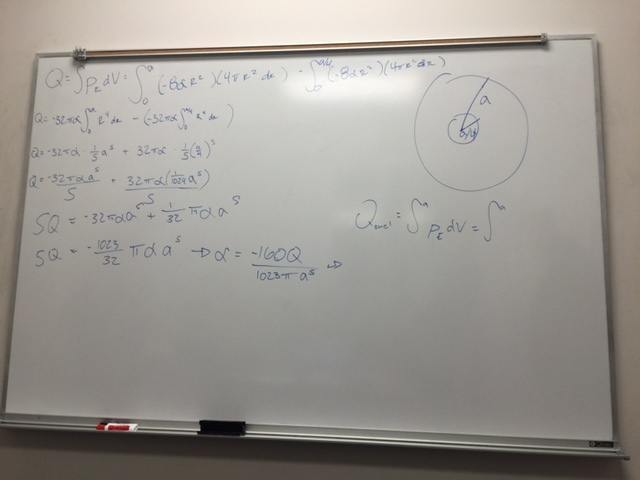 Q = ∫ρ_E dV = ∫₀ᵃ (-8αr²)(4πr² dr) - ∫₀^(a/4) (-8αr²)(4πr² dr)
Q = -32πα ∫₀ᵃ r⁴ dr - (-32πα ∫₀^(a/4) r⁴ dr)
Q = -32πα · 1/5 a⁵ + 32πα · 1/5 (a/4)⁵
Q = -32παa⁵/5 + 32πα(1/1024 a⁵)/5
5Q = -32παa⁵ + 1/32 παa⁵
5Q = -1023/32 παa⁵ → α = -160Q/1023πa⁵ →
a
a/4
Q_encl = ∫ᵃ ρ_E dV = ∫ᵃ